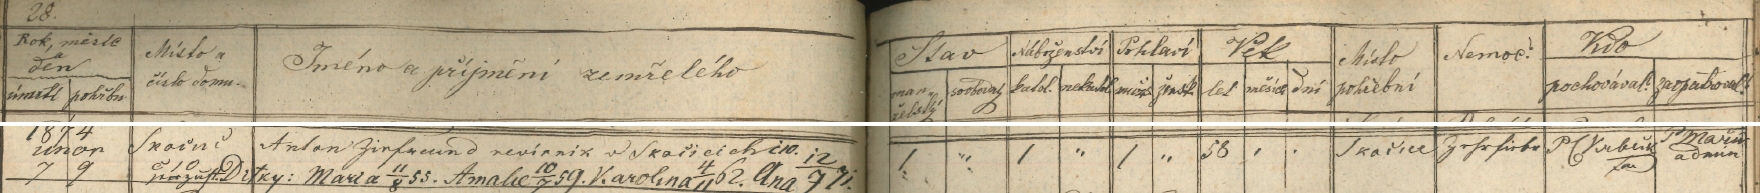 28.
Rok, měsíc
a
den
úmrtí pohřbu
Místo a
číslo domu.
Jméno a příjmění zemřelého
Stav
manželský svobodný
Náboženství
katol. nekatol.
Pohlaví
mužs. žensk.
Věk
let měsíců dní
Místo
pohřební
Nemoc
Kdo
pochovával zaopatřoval
1874
únor
7 9
Anton Zirfreund revírník v Skočicích no.
Ditky: Maria 11/8 55. Amalie 10/7 59. Karolina 4/11 62. Ana 12/7 71.
1 „ 1 1 „ 58 „ „ Skočice Zehrfieber P
admin